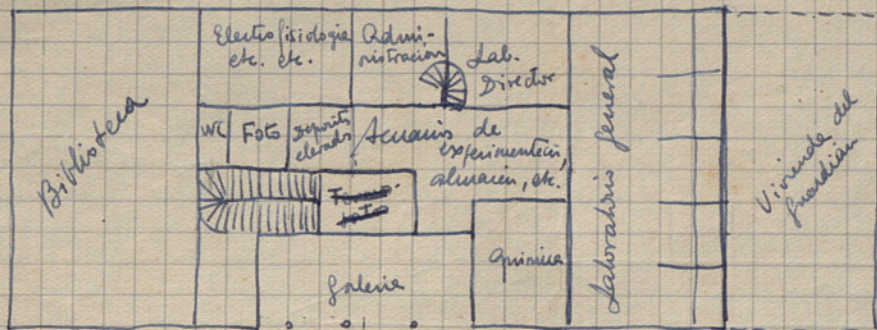 Biblioteca
Electrofisiologia
etc. etc.
Admi-
nistración
Lab.
Director
WC
Foto
Deposito
elevados
Acuarios de
experimentacion,
almacen, etc.
Galeria
Quimica
Laboratorio general
Vivienda del
guardián